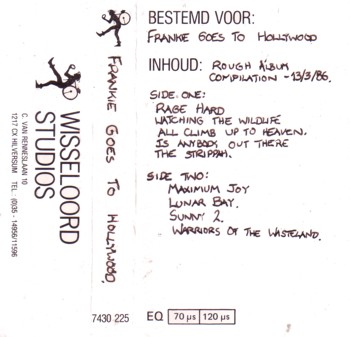 WISSELOORD
STUDIOS
C. VAN RENNESLAAN 10
1217 CX HILVERSUM TEL. (0)35 - 14956/11596
FRANKIE GOES TO HOLLYWOOD.
7430 225
BESTEMD VOOR:
FRANKIE GOES TO HOLLYWOOD
INHOUD: ROUGH ALBUM
COMPILATION - 13/3/86.
SIDE ONE:
RAGE HARD
WATCHING THE WILDLIFE
ALL CLIMB UP TO HEAVEN.
IS ANYBODY OUT THERE
THE STRIPPAH.
SIDE TWO:
MAXIMUM JOY
LUNAR BAY.
SUNNY 2.
WARRIORS OF THE WASTELAND.
EQ 70 µs 120 µs